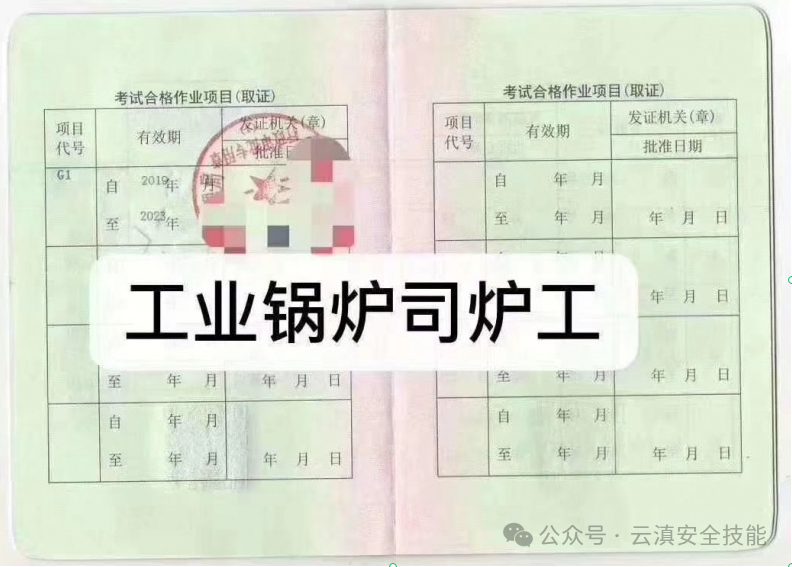 考试合格作业项目(取证)
项目代号 有效期 发证机关(章)
批准日期
G1 自 2019年 月
至 2023年
至 年 月 年 月 日
自 年 月
至 年 月 年 月 日
考试合格作业项目(取证)
项目代号 有效期 发证机关(章)
批准日期
自 年 月
至 年 月 年 月 日
年 月 日
至 年 月 年 月 日
自 年 月
至 年 月 年 月 日
工业锅炉司炉工
公众号·云滇安全技能